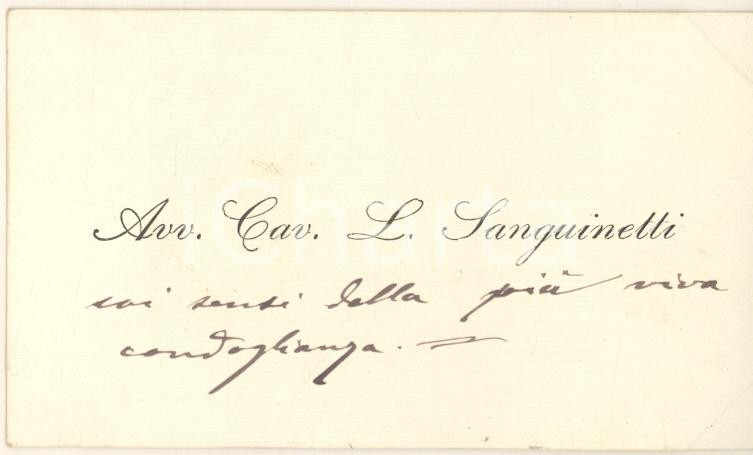 Avv. Cav. L. Sanguinetti
coi sensi della più viva
condoglianza.
iCharta